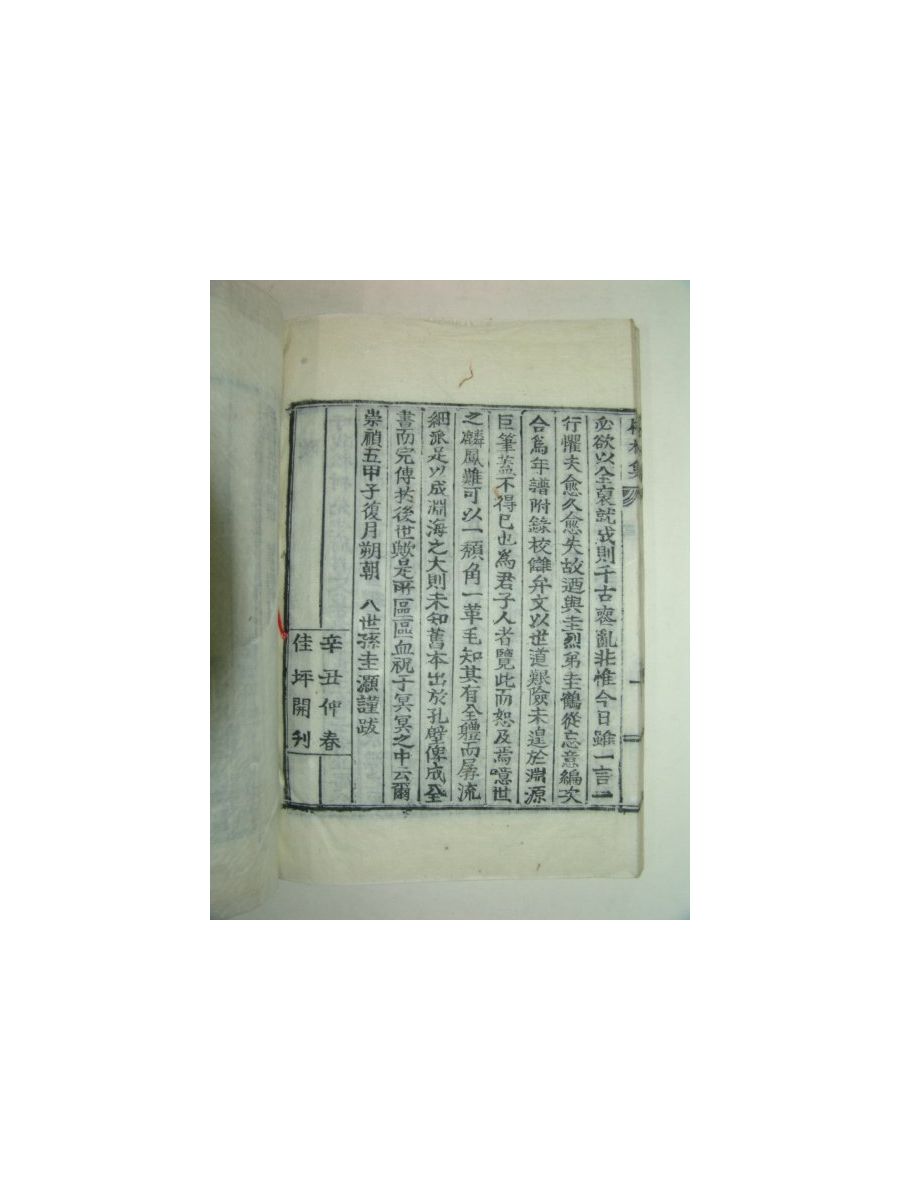 必欲以全裒就成則千古喪亂非惟今日雖一言二
行懼夫愈久愈失故迺與圭烈弟圭鶴從忘意編次
合爲年譜附錄校讎弁文以世道艱險未遑於淵源
巨筆蓋不得已也爲君子人者覽此而恕及焉噫世
之麟鳳雖可以一頹角一革毛知其有全體而孱流
細派是以成淵海之大則未知舊本出於孔壁俾成全
書而完傳於後世歟是所區區血祝于冥冥之中云爾
崇禎五甲子復月朔朝 八世孫圭灝謹跋
辛丑仲春
佳坪開刊